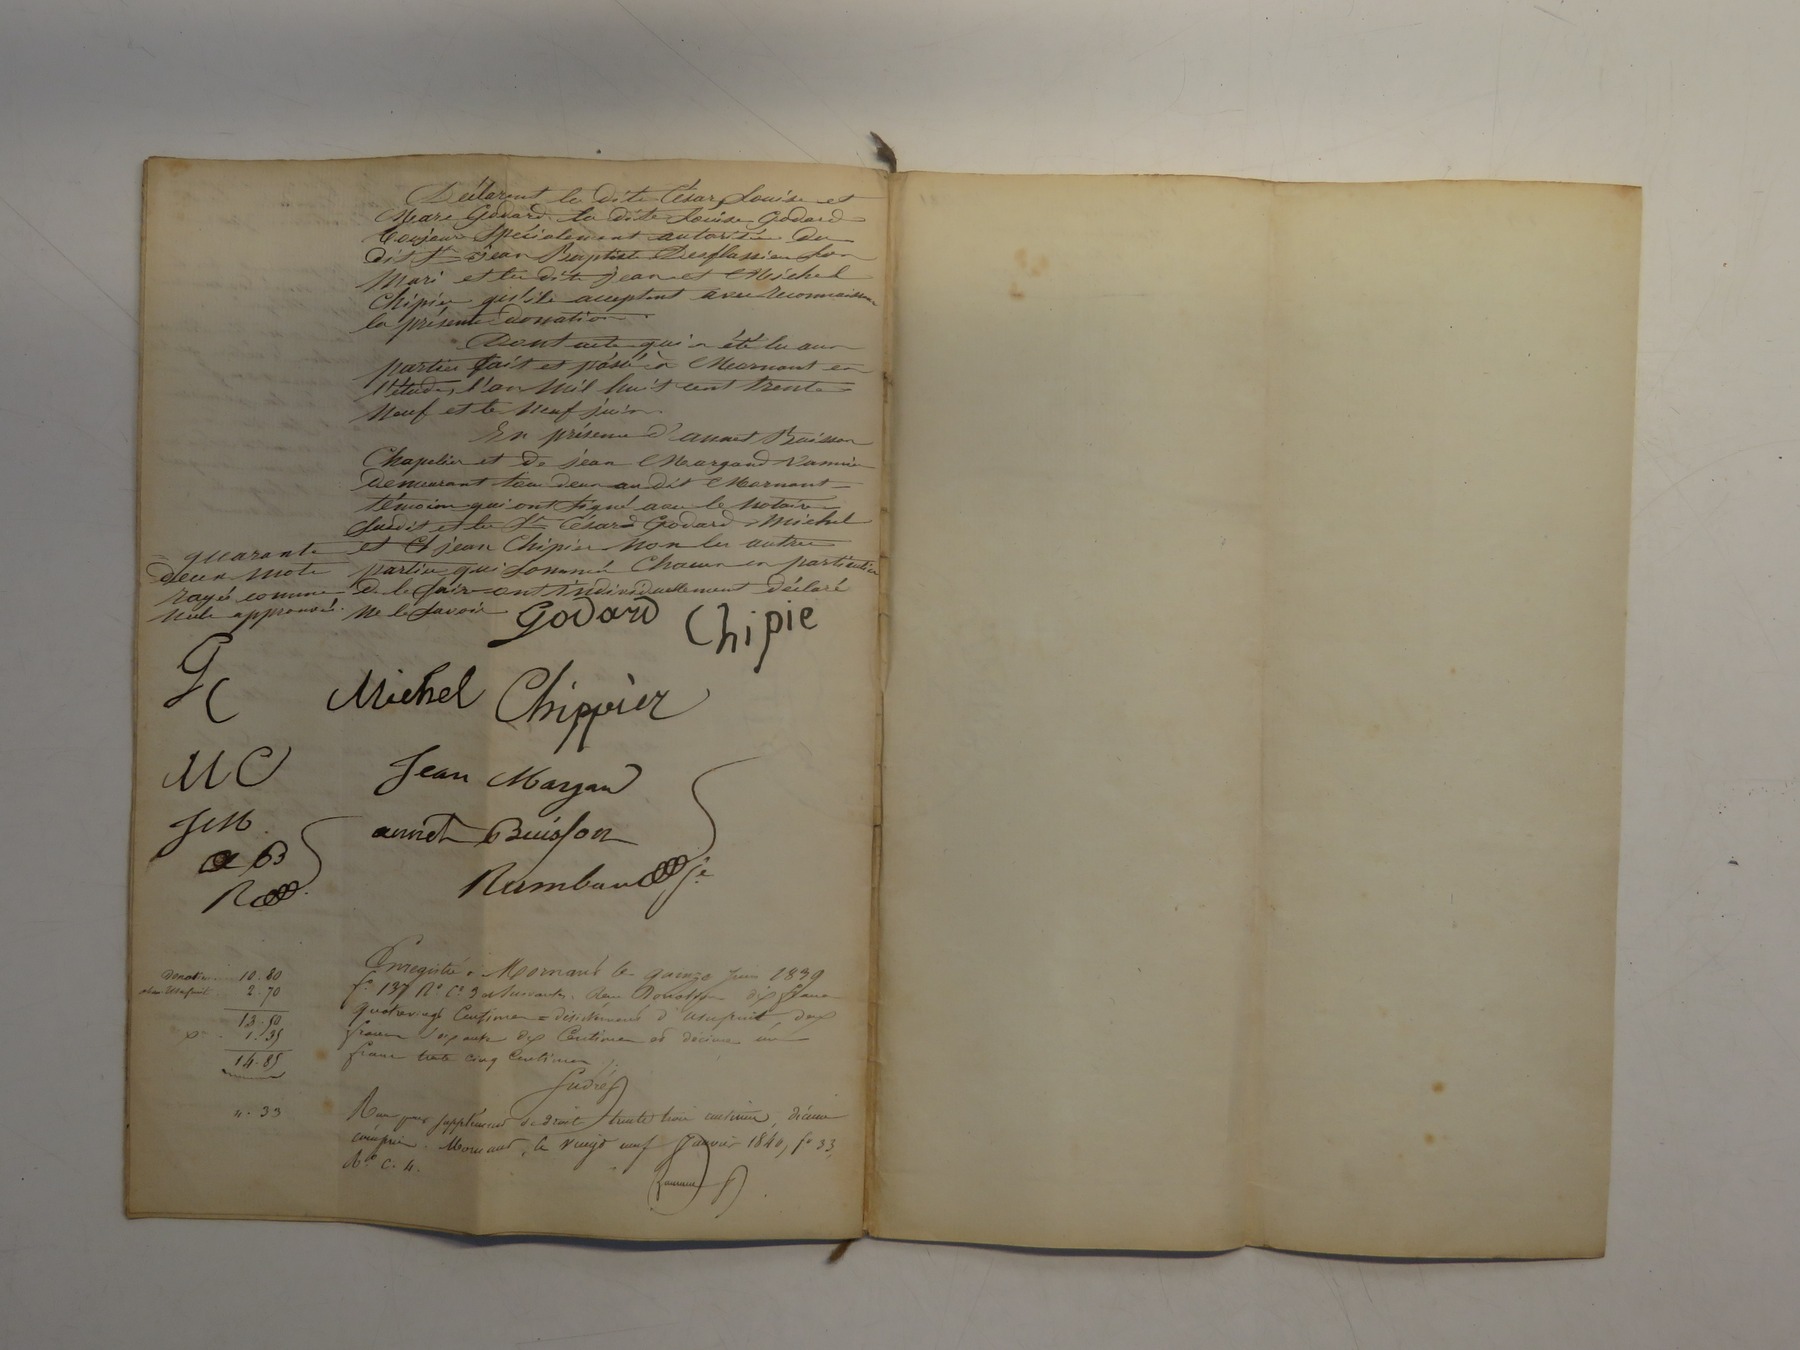 Déclarent les dits César, Louise et
Marc Godard la dite Louise Godard
toujours spécialement autorisée du
dit Sr Jean Baptiste son
mari et les dits jean et Michel
Chipier qu'ils acceptent avec reconnaissance
la présente donation.
Dont acte qui a été lu aux
parties fait et passé à Mornant en
l'étude, l'an mil huit cent trente
neuf et le neuf juin.
En présence d'annet Buisson
Chapelier et de jean Margand vannier
demeurant tous deux au dit Mornant
témoins qui ont signé avec le notaire
susdit et les Srs César Godard Michel
et jean Chipier non les autres
parties qui sommés chacun en particulier
de le faire ont individuellement déclaré
ne le savoir
= quarante
deux mots
rayés comme
nuls approuvés.
Godard Chipie
GC Michel Chippier
MC Jean Margan
JM annet Buisson
aB Rambaud
R
Enregistré à Mornant le quinze juin 1839
fo 137 Ro Cs 3 et suivantes. Reçu Donation dix francs
quatrevingt centimes = d'usufruit deux
francs soixante dix centimes et décime un
franc trente cinq centimes
donation 10.80
usufruit 2.70
13.50
1.35
14.85
Reçu pour supplément de droit trente trois centimes, décime
compris. Mornant, le vingt neuf janvier 1840, fo 33
Ro c. 4.
". 33